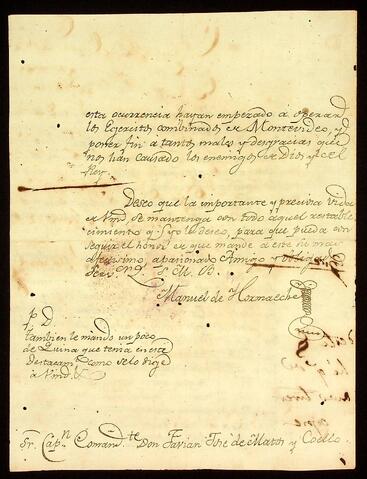 esta ocurrencia hayan empezado a operar
los Egercitos combinados en Montevideo, y
poner fin a tantos males y desgracias que
nos han causado los enemigos de Dios y el
Rey.
Deseo que la importante y preciosa vida
de Vmd, se mantenga con todo aquel restable
cimiento q. yo le deseo, para que pueda con
seguir el honor de que mande a este su mas
afectisimo, apasionado Amigo y
Serv. Q. S. M. B.
Manuel de Hornaeche
P. D.
tambien le mando un poco
de Quina que tenia en este
Destacam.to como se lo dige
a Vmd.
Sr. Cap.n Comand.te Don Favian Jph de Matos y Coello.